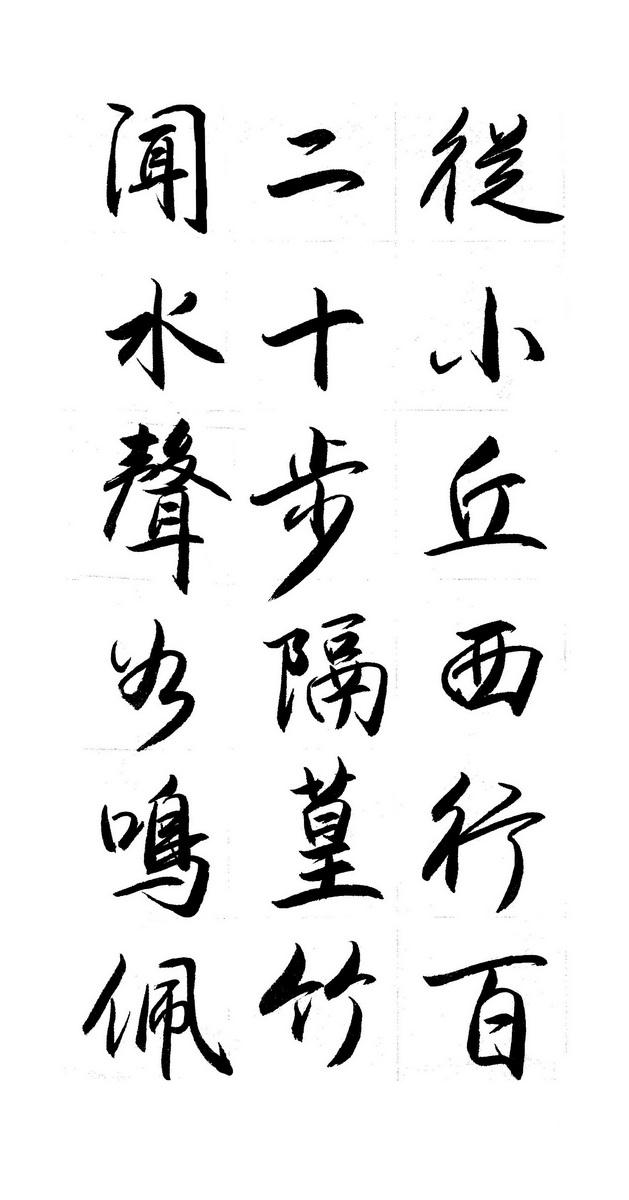 從小丘西行百
二十步隔篁竹
聞水聲如鳴佩